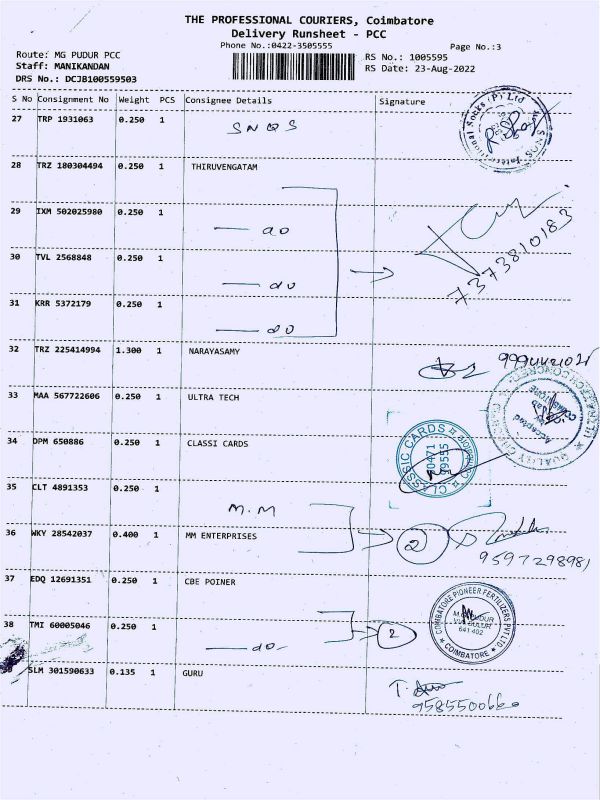 THE PROFESSIONAL COURIERS, Coimbatore
Delivery Runsheet - PCC
Phone No.:0422-3505555
Page No.:3
Route: MG PUDUR PCC
RS No.: 1005595
Staff: MANIKANDAN
RS Date: 23-Aug-2022
DRS No.: DCJB100559503
S No Consignment No Weight PCS Consignee Details Signature
27 TRP 1931063 0.250 1 SNQS
28 TRZ 180304494 0.250 1 THIRUVENGATAM
29 IXM 502025980 0.250 1 do
7373810183
30 TVL 2568848 0.250 1 do
31 KRR 5372179 0.250 1 do
32 TRZ 225414994 1.300 1 NARAYASAMY
33 MAA 567722606 0.250 1 ULTRA TECH
34 DPM 650886 0.250 1 CLASSI CARDS
CLASSIC CARDS
35 CLT 4891353 0.250 1 M.M
36 WKY 28542037 0.400 1 MM ENTERPRISES
2
9597298981
37 EDQ 12691351 0.250 1 CBE POINER
COIMBATORE PIONEER FERTILIZERS PVT LTD
641 402
COIMBATORE
38 TMI 60005046 0.250 1 do
2
SLM 301590633 0.135 1 GURU